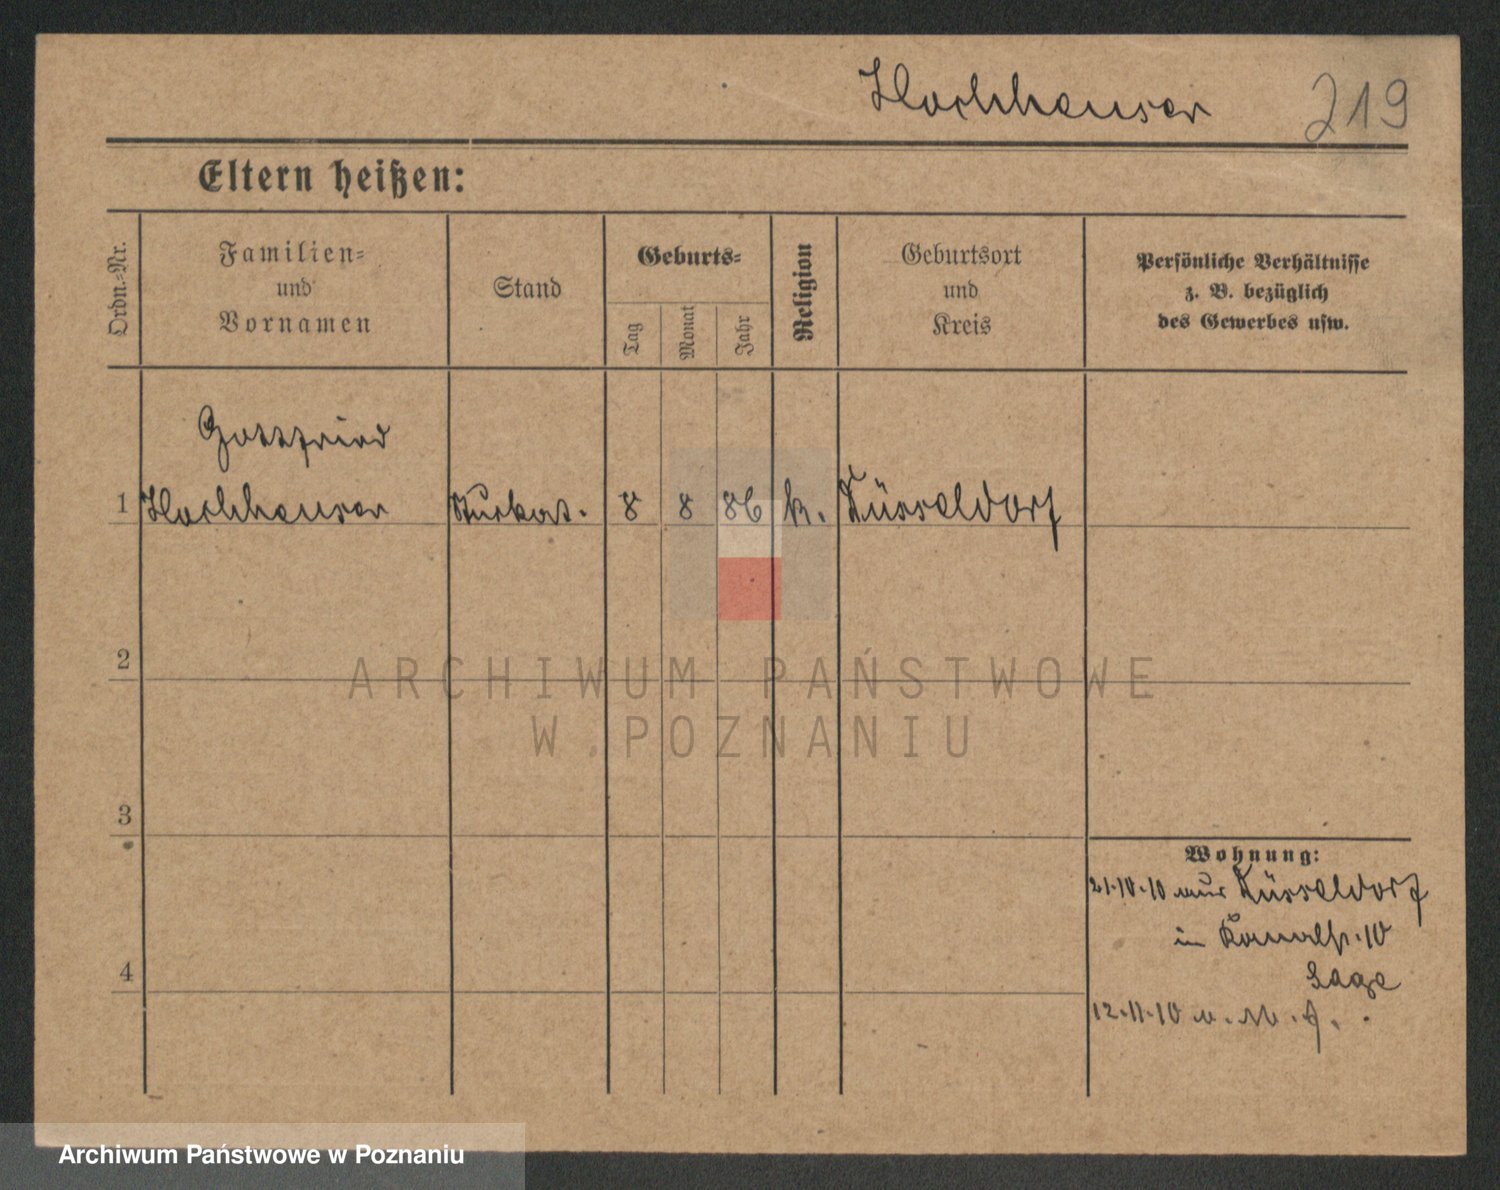 Hochheuser 219
Eltern heißen:
Ordn.-Nr.
Familien-
und
Vornamen
Stand
Geburts-
Tag
Monat
Jahr
Religion
Geburtsort
und
Kreis
Persönliche Verhältnisse
z. B. bezüglich
des Gewerbes usw.
Gottfried
1 Hochheuser 8 8 86 k. Düsseldorf
2
ARCHIWUM PAŃSTWOWE
W POZNANIU
3
Wohnung:
21.10.10 aus Düsseldorf
in Kanalstr. 10
4
12.11.10
Archiwum Państwowe w Poznaniu